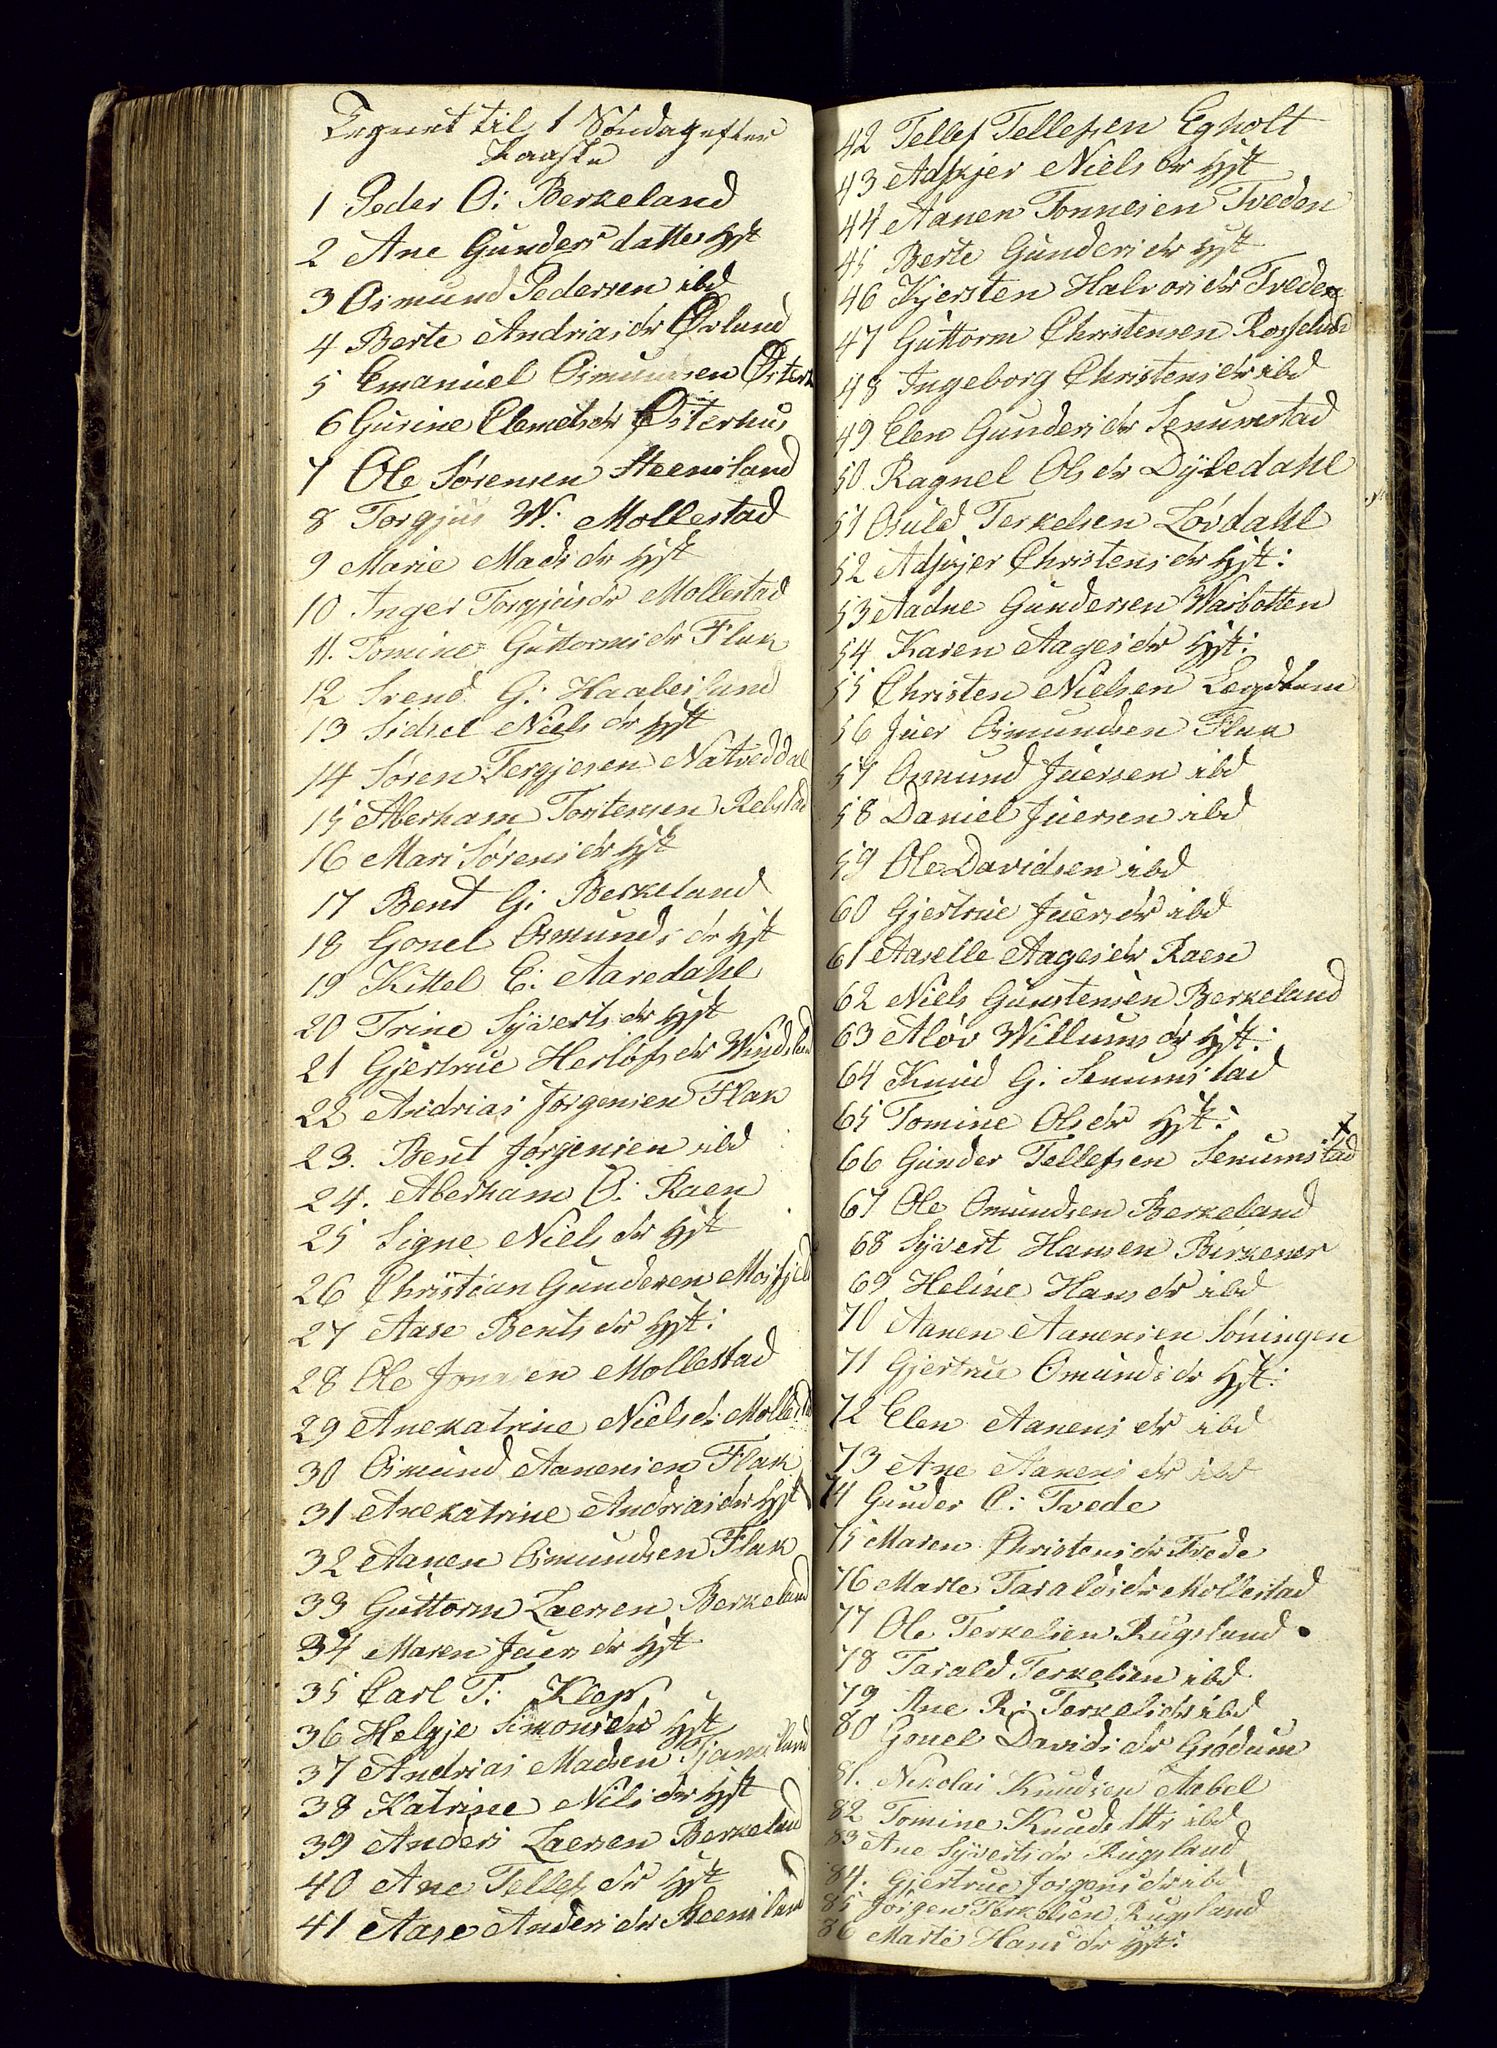 Tegnet til 1 Söndag efter
Paaske
1 Peder O: Berkeland
2 Ane Gunders datter Hst
3 Osmund Pedersen ibd
4 Berte Andriasdr Ørland
5 Emanuel Osmundsen Østerh
6 Gurine Clemetsdr Østerhus
7 Ole Sørensen Steensland
8 Torgjus W: Mollestad
9 Marie Madsdr Hst
10 Inger Torgjusdr Mollestad
11. Tomine Guttormsdr Flak
12 Svend G: Haabesland
13 Sidsel Nielsdr Hst
14 Søren Tergjesen Natveddal
15 Aberham Torstensen Rebstad
16 Mari Sörensdr Hst
17 Bent G: Berkeland
18 Gonel Osmundsdr Hst
19 Kittel E: Aaredahl
20 Trine Syvertsdr Hst
21 Gjertrue Herlofsdr Windsland
22 Andrias Jørgensen Flak
23. Bent Jørgensen ibd
24. Aberham O: Raen
25 Signe Nielsdr Hst
26 Christian Gundersen Mosfjeld
27 Aase Bentsdr Hst:
28 Ole Jensen Mollestad
29 Anekatrine Nielsd: Mollestad
30 Osmund Aanensen Flak
31 Anekatrine Andriasdr Hst
32 Aanen Osmundsen Flak
33 Guttorm Laersen Berkeland
34 Maren Juersdr Hst
35 Carl T: Klep
36 Helgje Simonsdr Hst
37 Andrias Madsen Tjamsland
38 Katrine Nilsdr Hst
39 Anders Laersen Berkeland
40 Ane Tellefsdr Hst
41 Aase Andersdr Steensland
42 Tellef Tellefsen Egholt
43 Adskjer Nielsdr Hst
44 Aanen Tonnesen Tveden
45 Berte Gundersdr Hst
46 Kjersten Halvorsdr Tveden
47 Guttorm Christensen Rosseland
48 Ingeborg Christensdr ibd
49 Elen Gundersdr Senumstad
50 Ragnel Olsdr Dyledahl
51 Osuld Terkelsen Lövdahl
52 Adskjer Christensdr Hst:
53 Aadne Gundersen Warbotten
54 Karen Aagesdr Hst:
55 Christen Nielsen Legdham
56 Juer Osmundsen Flak
57 Osmund Juersen ibd
58 Daniel Juersen ibd
59 Ole Davidsen ibd
60 Gjertrue Juersdr ibd
61 Aaselle Aagesdr Raen
62 Niels Gunstensen Berkeland
63 Aløv Willumsdr Hst:
64 Knud G: Senumstad
65 Tomine Olsdr Hst:
66 Gunder Tellefsen Senumstad
67 Ole Omundsen Berkeland
68 Syvert Hansen Birkenes
69 Heline Hansdr ibd
70 Aanen Aanensen Söningen
71 Gjertrue Omundsdr Hst:
72 Elen Aanensdr ibd
73 Ane Aanensdr ibd
74 Gunder C: Tvede
75 Maren Christensdr Tvede
76 Marte Taraldsdr Mollestad
77 Ole Terkelsen Rugsland
78 Tarald Terkelsen ibd
79 Ane R: Terkelsdr ibd
80 Gonel Davidsdr Grödum
81. Nikolai Knudsen Aabel
82 Tomine Knudsdttr ibd
83 Ane Syvertsdr Rugsland
84. Gjertrue Jorgensdr ibd
85 Jørgen Terkelsen Rugsland
86 Marte Hansdr Hst: